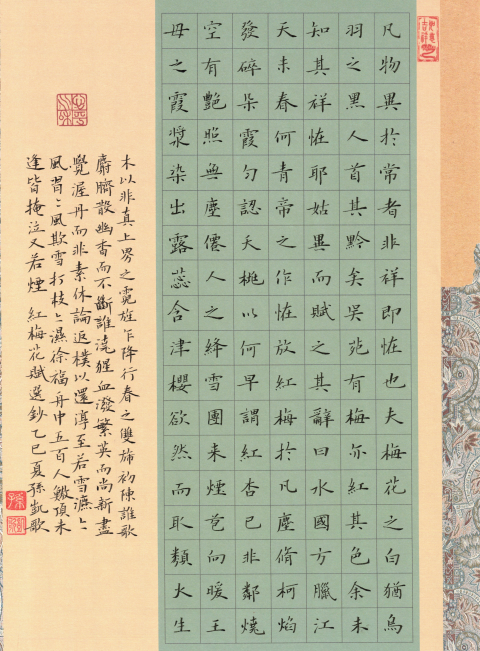 凡物異於常者非祥即恠也夫梅花之白猶烏
羽之黑人首其黔矣吳苑有梅亦紅其色余未
知其祥恠耶姑異而賦之其辭曰水國方臘江
天未春何青帝之作恠放紅梅於凡塵脩柯焰
發碎朵霞勻認夭桃以何早謂紅杏已非鄰燒
空有艷照無塵僊人之絳雪團來煙苞向暖王
母之霞漿染出露蕊含津櫻欲然而取類火生
木以非真上界之霓旌乍降行春之雙旆初陳誰歌
麝臍散幽香而不斷誰澆猩血潑繁英而尚新盡
覺渥丹而非素休論返樸以還淳至若雪灑〻
風習〻風欺雪打枝〻濕徐福舟中五百人頂未
逢皆掩泣又若煙 紅梅花賦選鈔乙巳夏孫凱歌